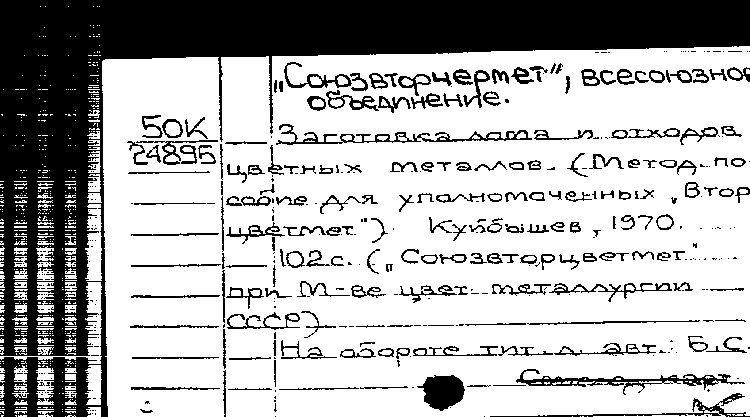 „Союзвторчермет", всесоюзное
объединение.
50К
24896
Заготовка лома и отходов
цветных металлов. (Метод. по-
собие для уполномоченных „Втор-
цветмет"). Куйбышев, 1970.
102 с. („Союзвторцветмет"
при М-ве цвет. металлургии
СССР)
На обороте тит. л. авт.: Б.С.